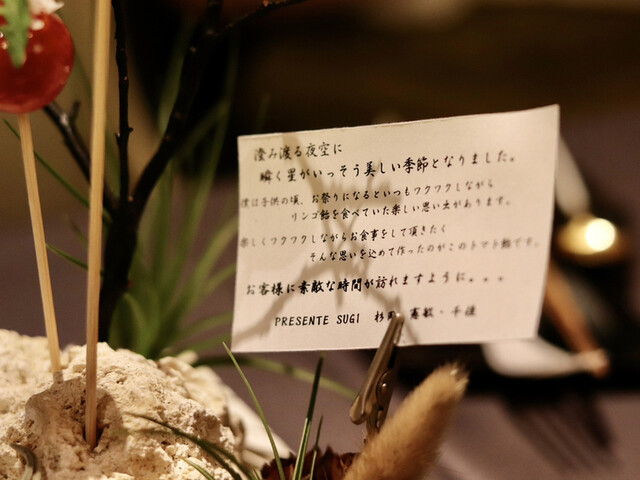 澄み渡る夜空に
瞬く星がいっそう美しい季節となりました。
僕は子供の頃、お祭りになるといつもワクワクしながら
リンゴ飴を食べていた楽しい思い出があります。
楽しくワクワクしながらお食事をして頂きたく
そんな思いを込めて作ったのがこのトマト飴です。
お客様に素敵な時間が訪れますように。。。
PRESENTE SUGI 杉 憲敏・千佳